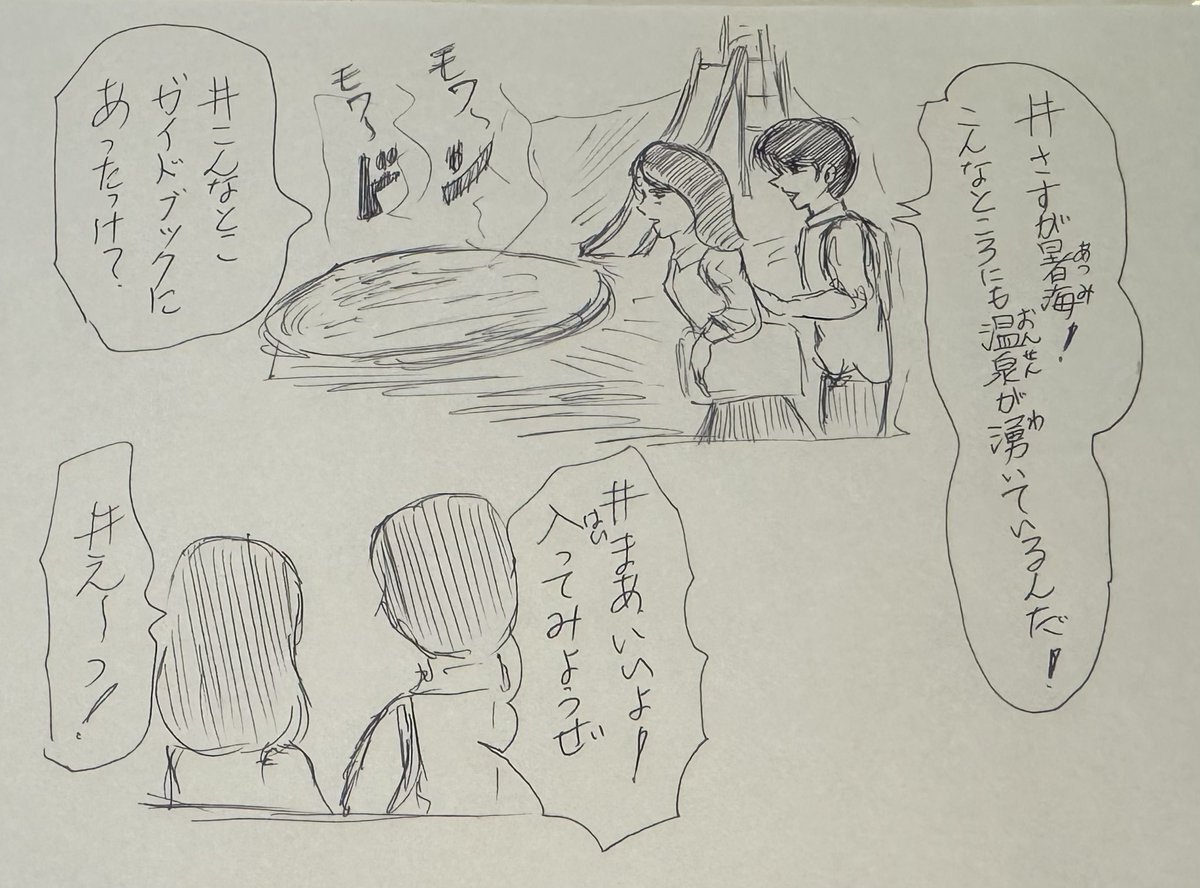 #さすが暑海！
あつみ
こんなところにも温泉が湧いているんだ！
おんせん
わ
モワ〜
モワ〜
#こんなとこ
ガイドブックに
あったっけ？
#まあいいよ！
入ってみようぜ
はい
#え〜っ！